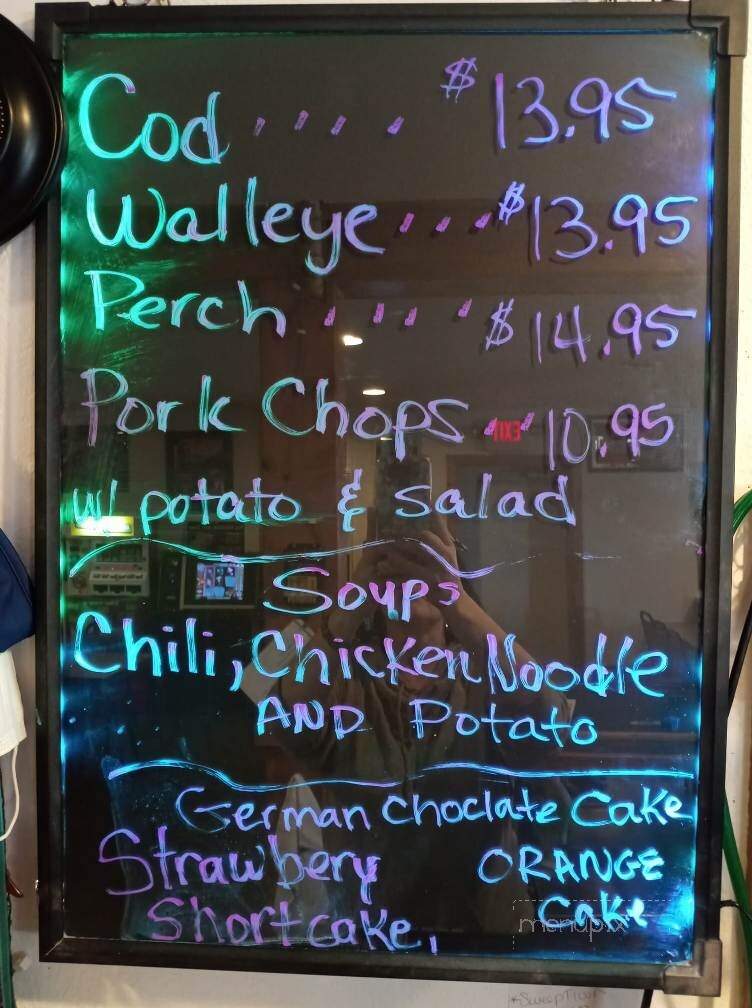 Cod . . . . $ 13.95
Walleye . . . $ 13.95
Perch . . . . $ 14.95
Pork Chops . . . 10.95
w/ potato & salad
Soups
Chili, Chicken Noodle
AND Potato
German Choclate Cake
Strawbery
Shortcake,
ORANGE
Cake
menupix